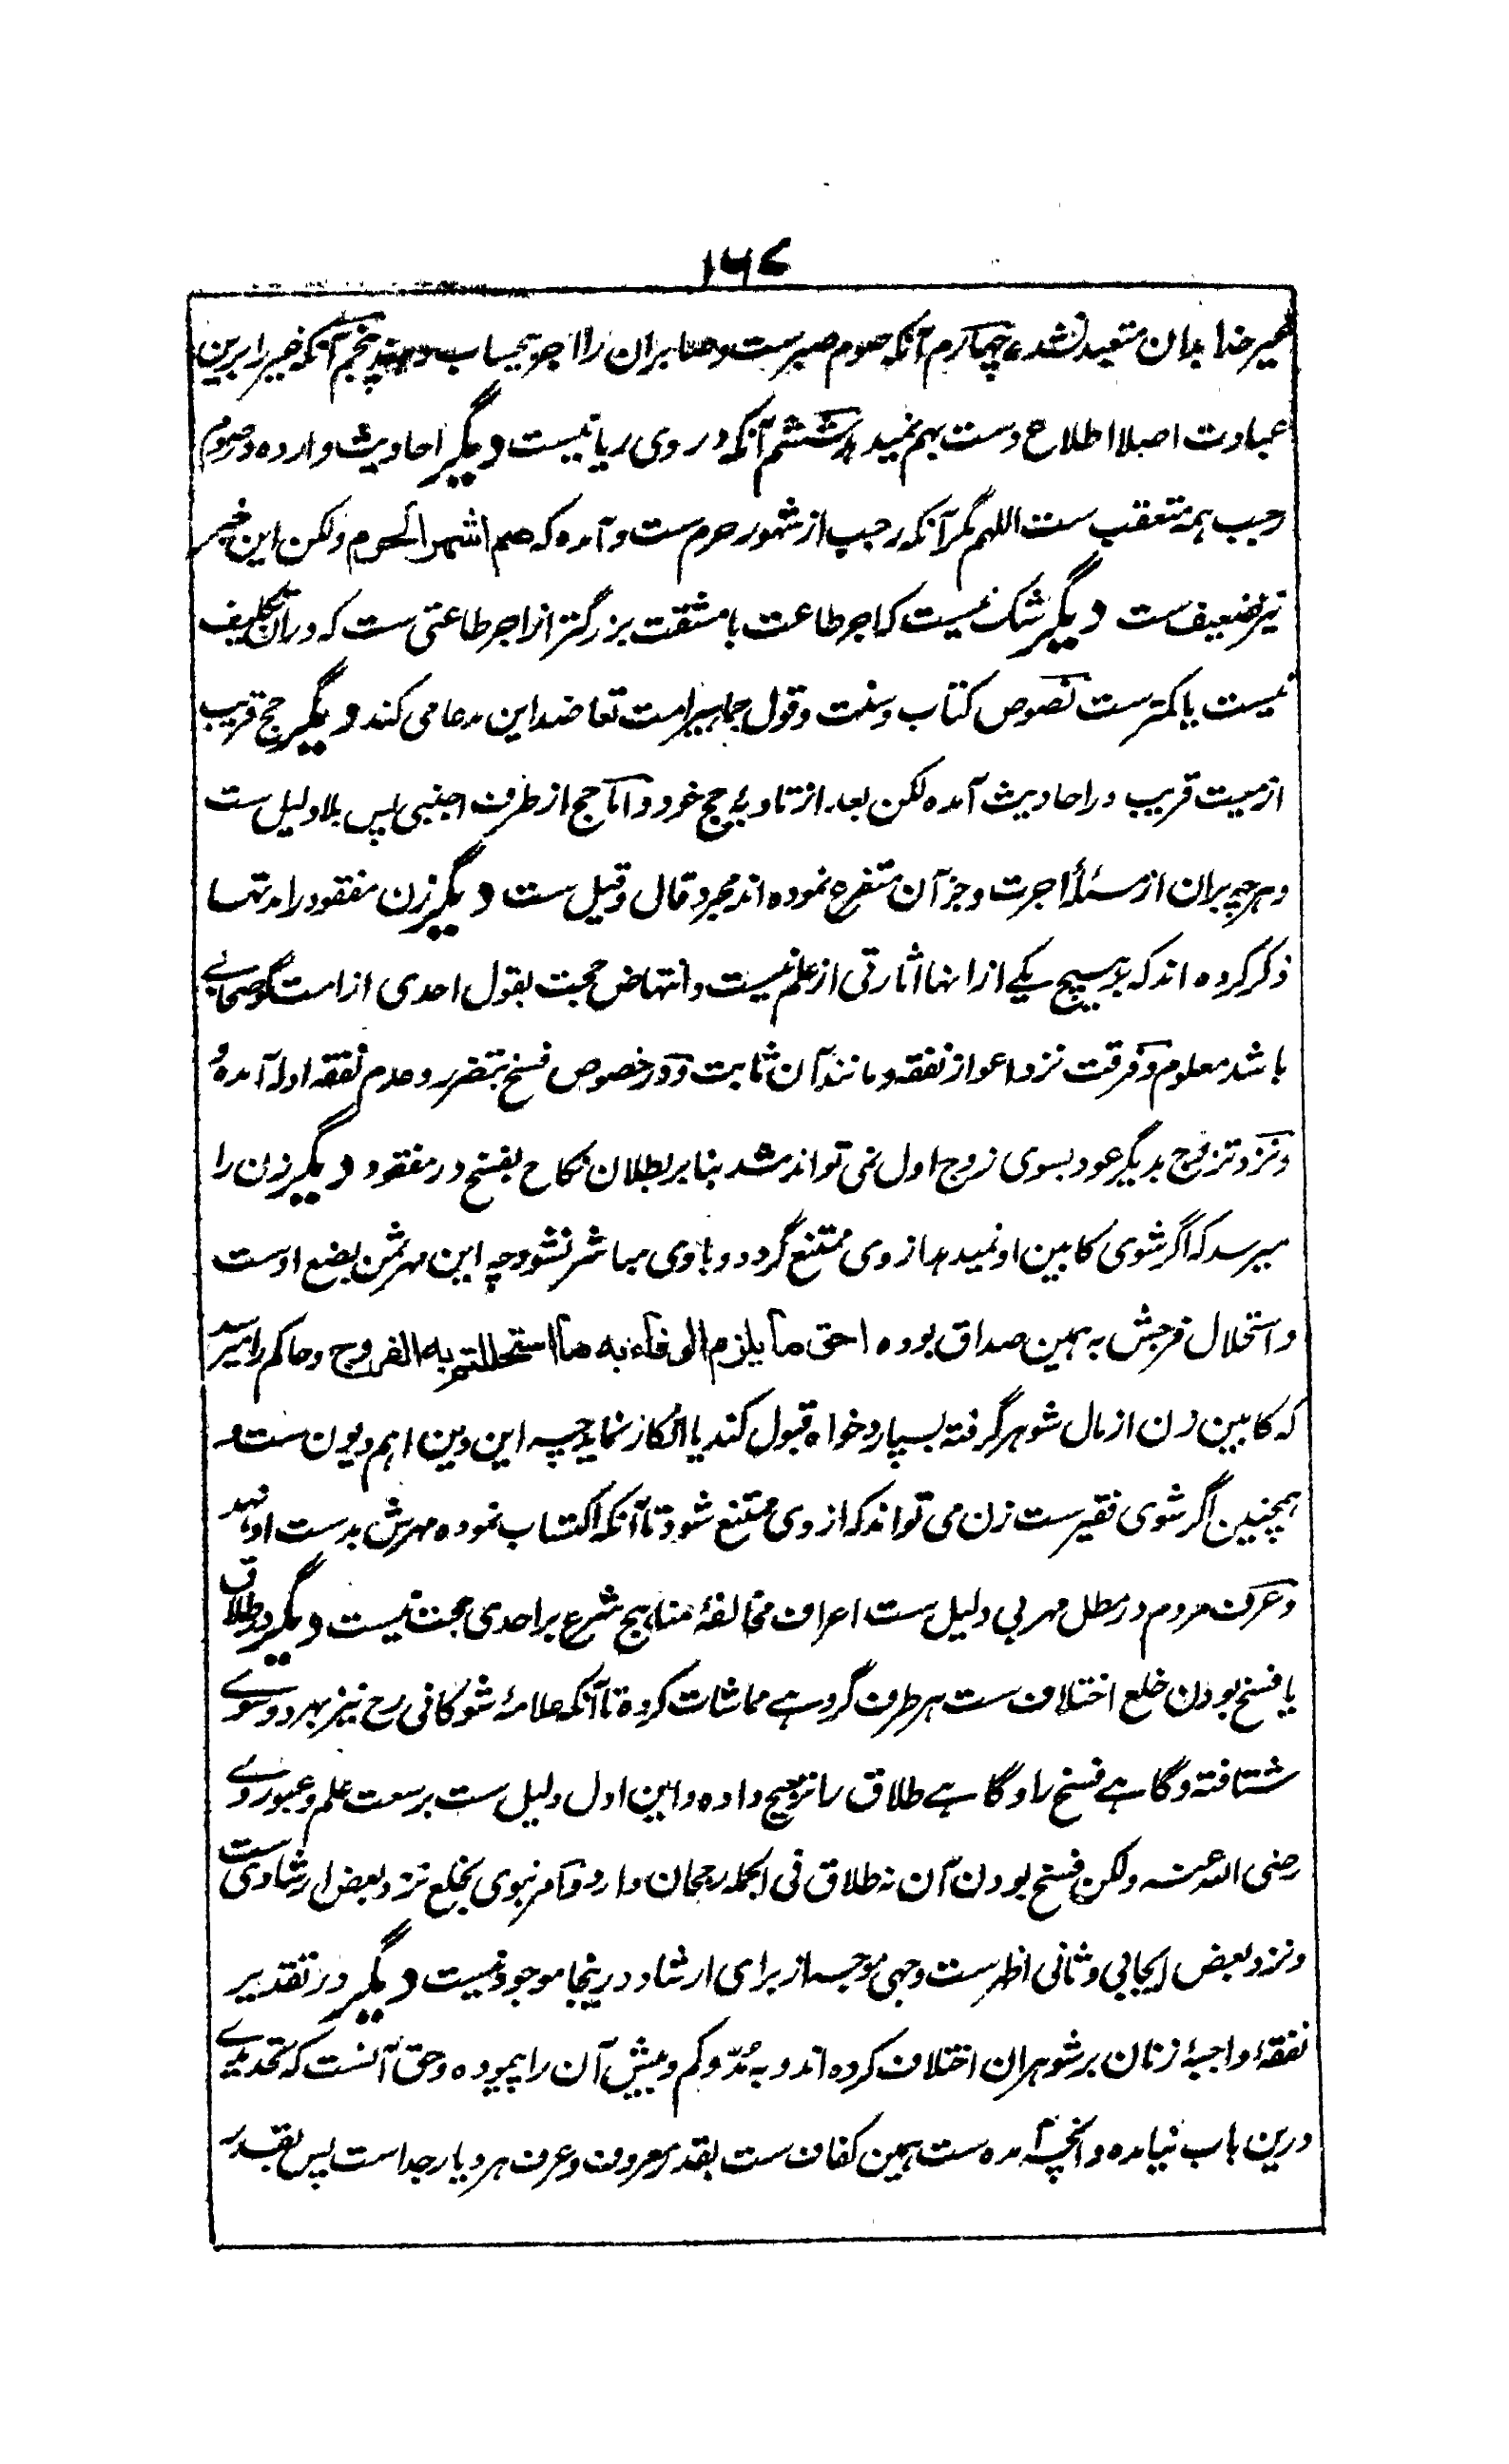 ۱۶۷
غیر خدا بدان متعبد نشده چهارم آنکه صوم صبرست و صابران را اجر بیحساب دهند پنجم آنکه غیر را برین
عبادت اصلا اطلاع دست بهم نمیدهد ششم آنکه در وی ریا نیست دیگر احادیث وارده در صوم
رجب همه متعقب ست اللهم مگر آنکه رجب از شهور حرم ست و آمده که صم اشهر الحرم ولکن این خبر
نیز ضعیف ست دیگر شک نیست که اجر طاعت با مشقت بزرگتر از اجر طاعتی ست که در آن تکلیف
نیست یا کمترست نصوص کتاب و سنت و قول جماهیر امت تعاضد این مدعا می کند دیگر حج قریب
از میت قریب در احادیث آمده لکن بعد از تادیهٔ حج خود و اما حج از طرف اجنبی پس بلا دلیل ست
و هرچه بران از مسئلهٔ اجرت و جز آن متفرع نموده اند مجرد قال و قیل ست دیگر زن مفقود را مدتها
ذکر کرده اند که بر هیچ یکے ازانها اثارتی از علم نیست و انتهاض حجت بقول احدی از امت گو صحابے
باشد معلوم و فرقت نزد اعواز نفقه و مانند آن ثابت و در خصوص فسخ بتضرر و عدم نفقه ادله آمده و
و نزد تزوج بدیگر عود بسوی زوج اول نمی تواند شد بنا بر بطلان نکاح بفسخ در مفقود دیگر زن را
میرسد که اگر شوی کابین او نمیدهد از وی ممتنع گردد و با وی مباشر نشود چه این مهر ثمن بضع اوست
و استحلال فرجش به همین صداق بوده احق ما یلزم الوفاء به ما استحللتم به الفروج و حاکم را میرسد
که کابین زن از مال شوهر گرفته بسپارد خواه قبول کند یا انکار نماید چه این دین اهم دیون ست و
همچنین اگر شوی فقیرست زن می تواند که از وی ممتنع شود تا آنکه اکتساب نموده مهرش بدست او نهد
و عرف مردم در مطل مهر بی دلیل ست اعراف مخالفهٔ مناهج شرع بر احدی حجت نیست دیگر در طلاق
یا فسخ بودن خلع اختلاف ست هر طرف گروهے مماشات کرده تا آنکه علامهٔ شوکانی رح نیز بهر دو سوے
شتافته و گاہے فسخ را و گاہے طلاق را ترجیح داده و این اول دلیل ست بر سعت علم و عبور وے
رضی الله عنه ولکن فسخ بودن آن نه طلاق فی الجمله رجحان دارد و امر نبوی بخلع نزد بعض ارشادی ست
و نزد بعض ایجابی و ثانی اظهرست وجهی موجه از برای ارشاد درینجا موجود نیست دیگر در تقدیر
نفقهٔ واجبهٔ زنان بر شوهران اختلاف کرده اند و به مُدّ و کم و بیش آن را پیموده و حق آنست که تحدیدے
درین باب نیامده و آنچه آمده ست همین کفاف ست بقدر معروف و عرف هر دیار جداست پس بقدر